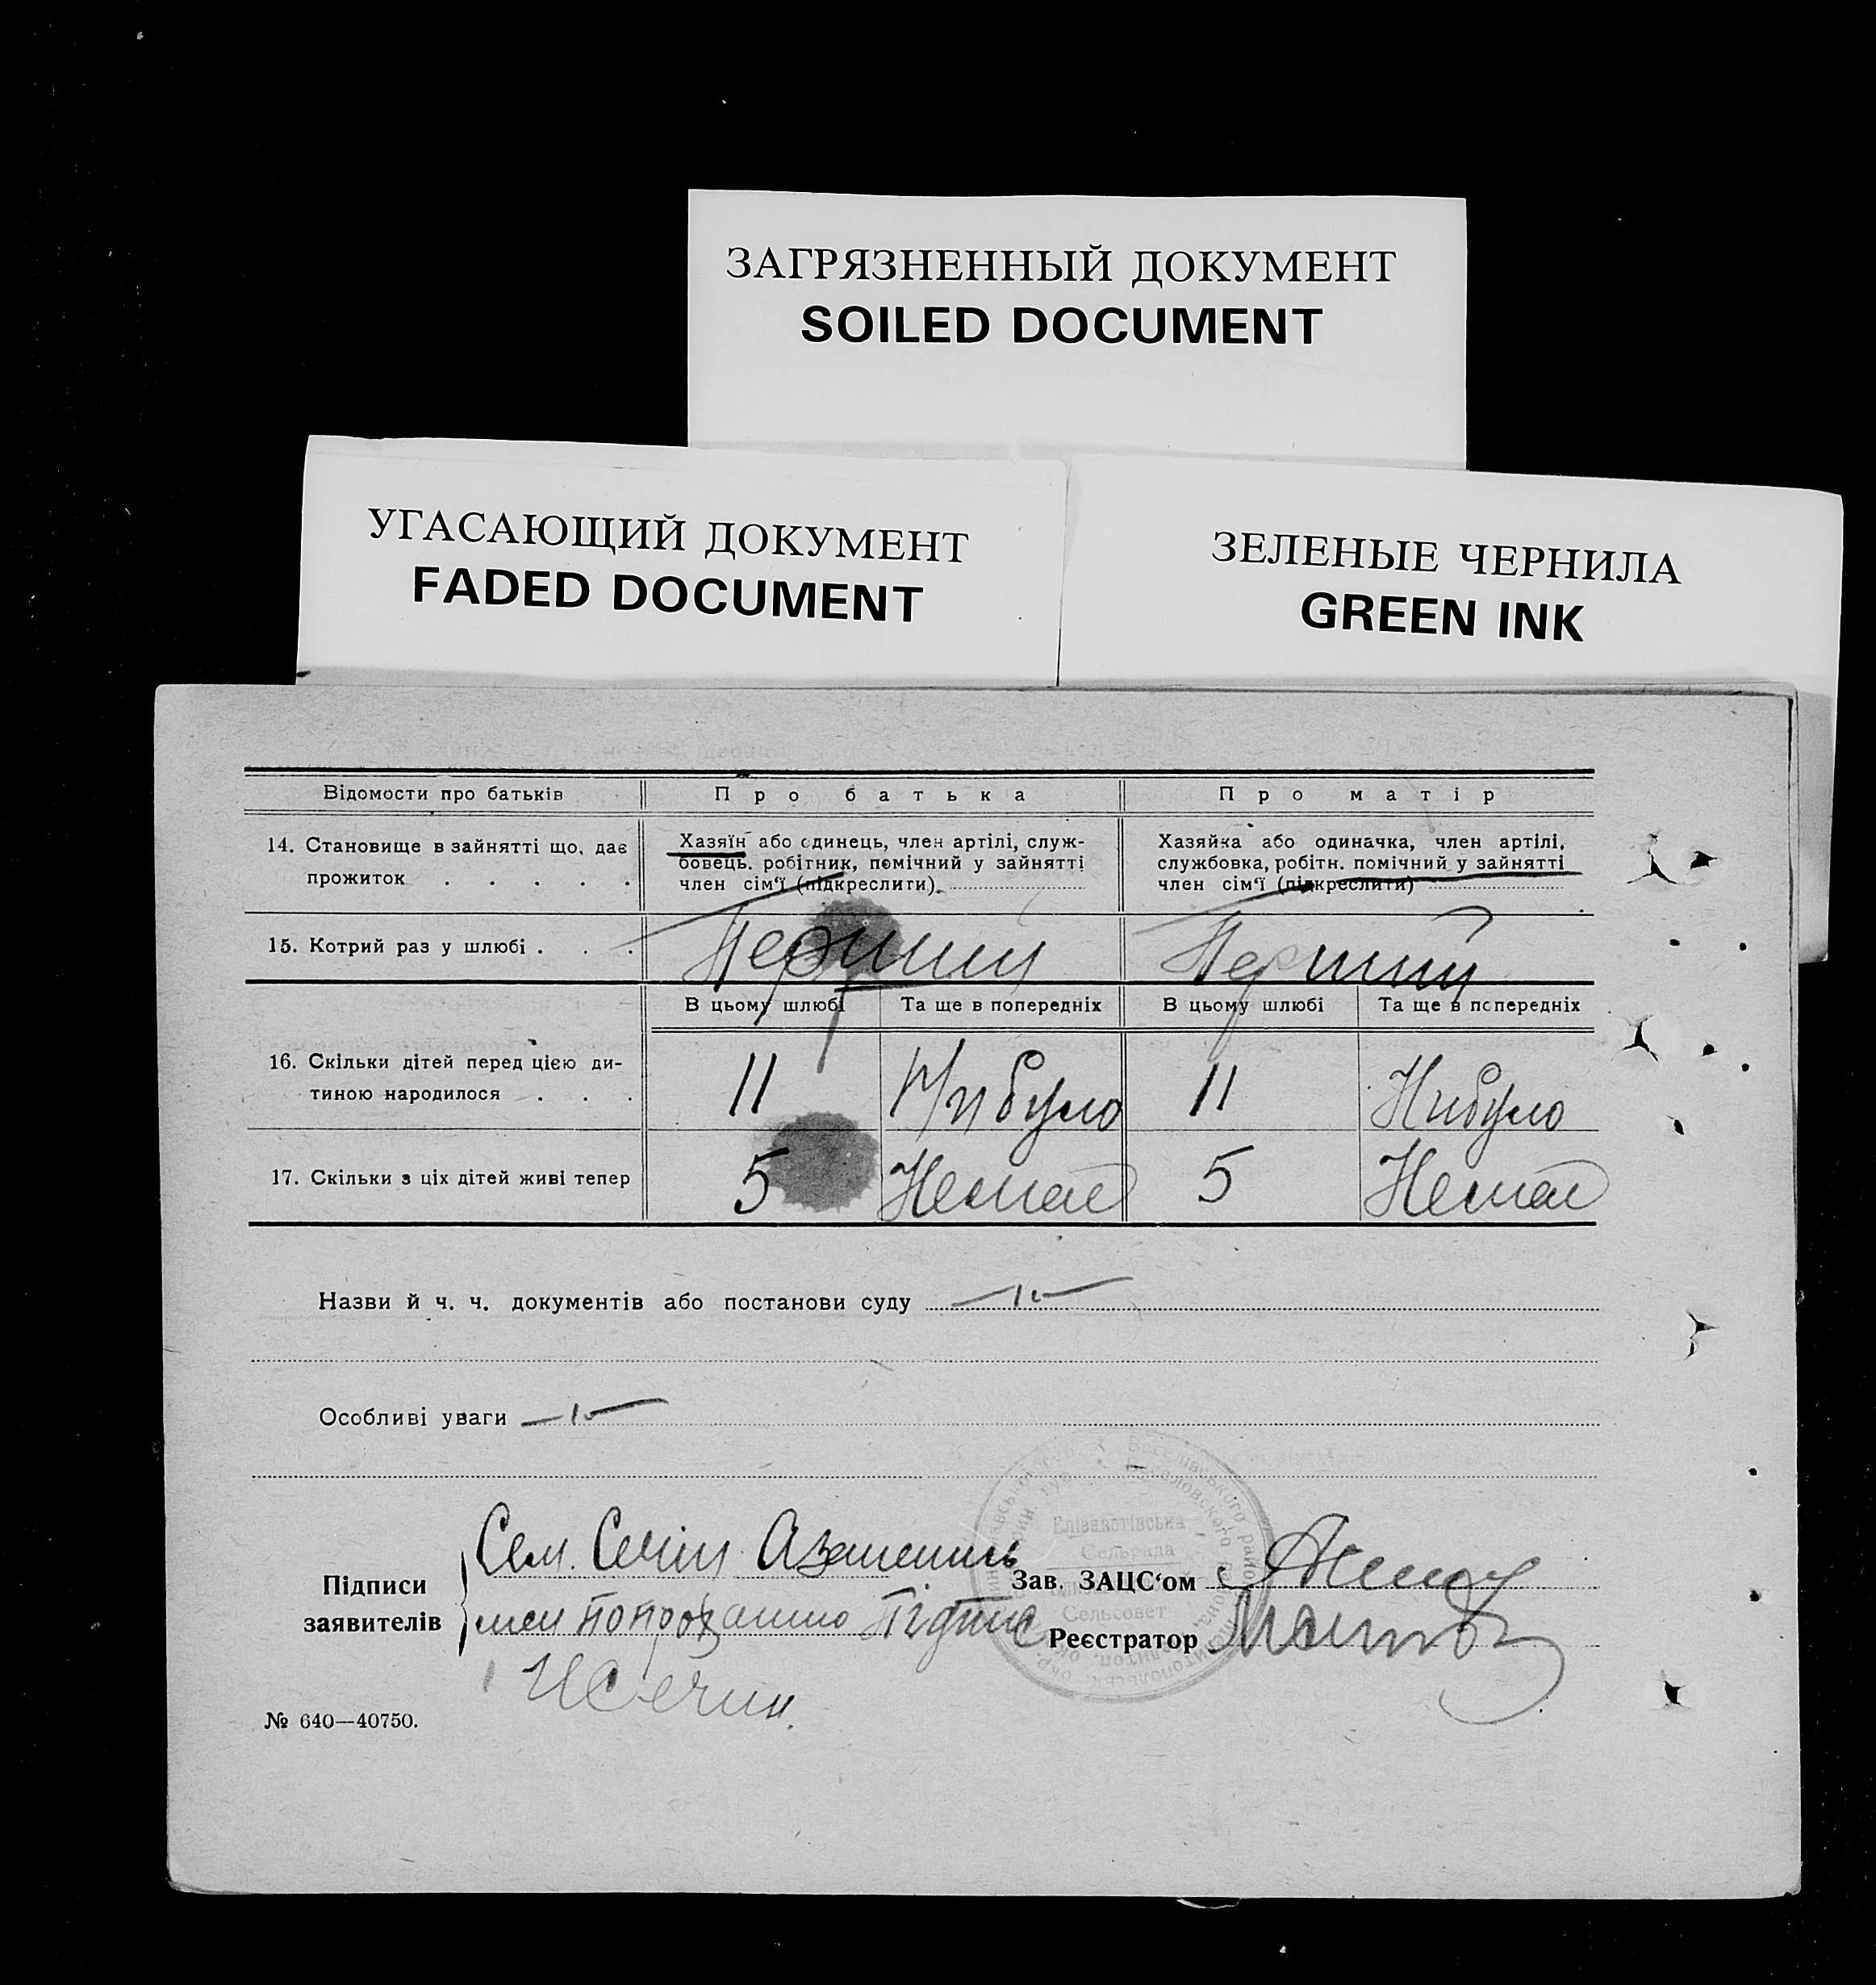 ЗАГРЯЗНЕННЫЙ ДОКУМЕНТ
SOILED DOCUMENT
УГАСАЮЩИЙ ДОКУМЕНТ
FADED DOCUMENT
ЗЕЛЕНЫЕ ЧЕРНИЛА
GREEN INK
Відомости про батьків
Про батька
Про матір
14. Становище в зайнятті що, дає
прожиток . . . . .
Хазяїн або одинець, член артілі, служ-
бовець. робітник, помічний у зайнятті
член сім'ї (підкреслити).
Хазяйка або одиначка, член артілі,
службовка, робітн. помічний у зайнятті
член сім'ї (підкреслити)
15. Котрий раз у шлюбі . . .
Перший
Перший
В цьому шлюбі
Та ще в попередніх
В цьому шлюбі
Та ще в попередніх
16. Скільки дітей перед цією ди-
тиною народилося . . .
11
Ни було
11
Нибуло
17. Скільки з ціх дітей живі тепер
5
Немає
5
Немає
Назви й ч. ч. документів або постанови суду
Особливі уваги
Підписи
заявителів
Сем. Сечін
підпис
Зав. ЗАЦС'ом
Реєстратор
Сельрада
Сельсовет
№ 640—40750.